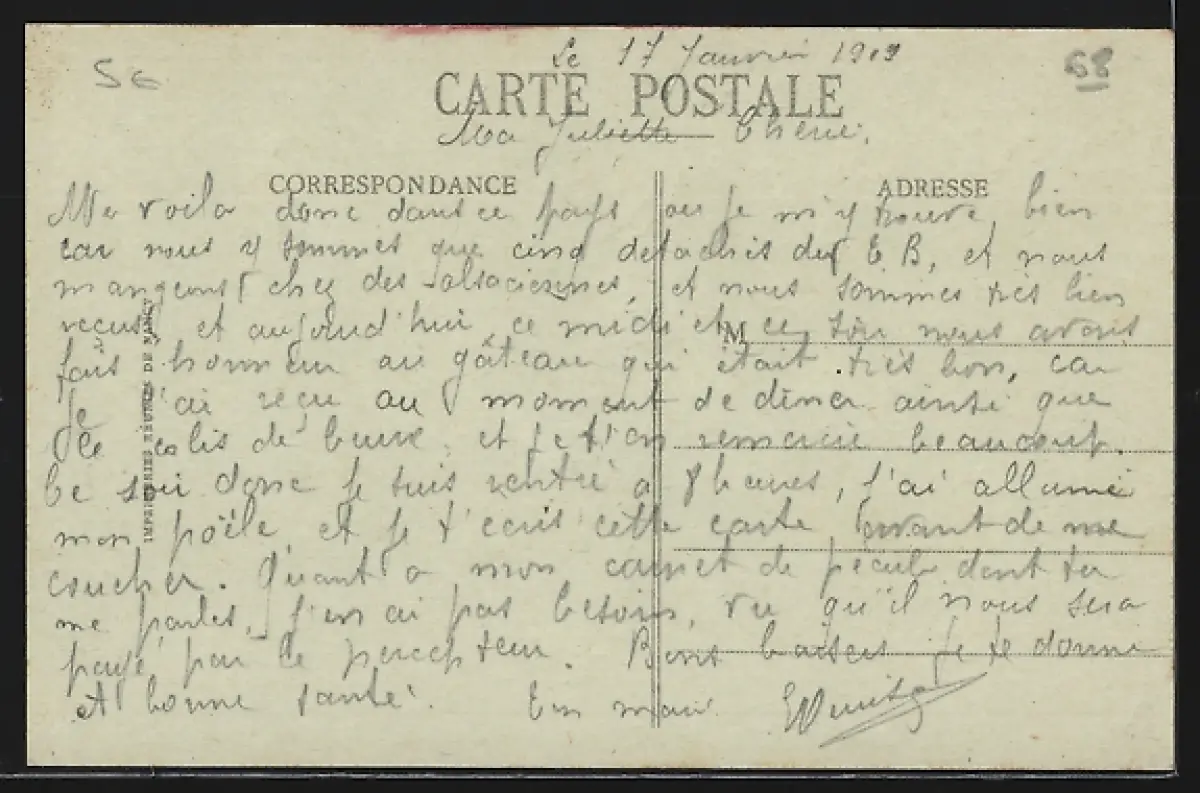 5e
68
Le 17 Janvier 1919
CARTE POSTALE
Ma Juliette Chérie.
CORRESPONDANCE
ADRESSE
Me voila donc dans ce pays ou je m'y trouve bien
car nous y sommes que cinq détachés du E B, et nous
mangeons chez des alsaciennes, et nous sommes très bien
reçus, et aujourd'hui ce midi et ce soir nous avons
M
fais honneur au gâteau qui était très bon, car
je l'ai reçu au moment de diner ainsi que
le colis de beurre, et je t'en remercie beaucoup.
Ce soir donc je suis rentré a 8 heures, j'ai allumé
mon poële et je t'écris cette carte avant de me
coucher. Quant a mon carnet de pécule dont tu
me parles, j'en ai pas besoin, vu qu'il nous sera
payé par le percepteur. Bons baisers je te donne
et bonne santé. Ton mari
IMPRIMERIES RÉUNIES DE NANCY